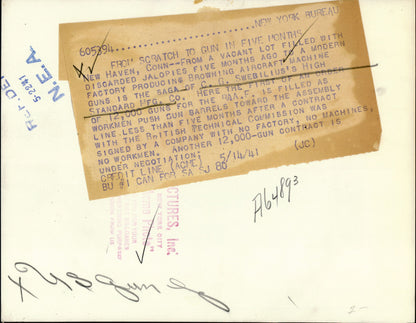 NEW YORK BUREAU
605394
FROM SCRATCH TO GUN IN FIVE MONTHS
NEW HAVEN, CONN--FROM A VACANT LOT FILLED WITH
DISCARDED JALOPIES FIVE MONTHS AGO TO A MODERN
FACTORY PRODUCING BROWNING AIRCRAFT MACHINE
GUNS IS THE SAGA OF C. G. SWEBILIUS'S HIGH
STANDARD MFG. CO. HERE THE FIRST OF AN ORDER
OF 12,000 GUNS FOR THE R.A.F. IS FILLED AS
WORKMEN PUSH GUN BARRELS TOWARD THE ASSEMBLY
LINE LESS THAN FIVE MONTHS AFTER A CONTRACT
WITH THE BRITISH TECHNICAL COMMISSION WAS
SIGNED BY A COMPANY WITH NO FACTORY, NO MACHINES,
NO WORKMEN. ANOTHER 12,000-GUN CONTRACT IS
UNDER NEGOTIATION.
CREDIT LINE (ACME) 5/14/41 (JC)
BU #1 CAN FOR SA SJ 80
N.E.A.
A64893
PICTURES, Inc.
NEW YORK CITY